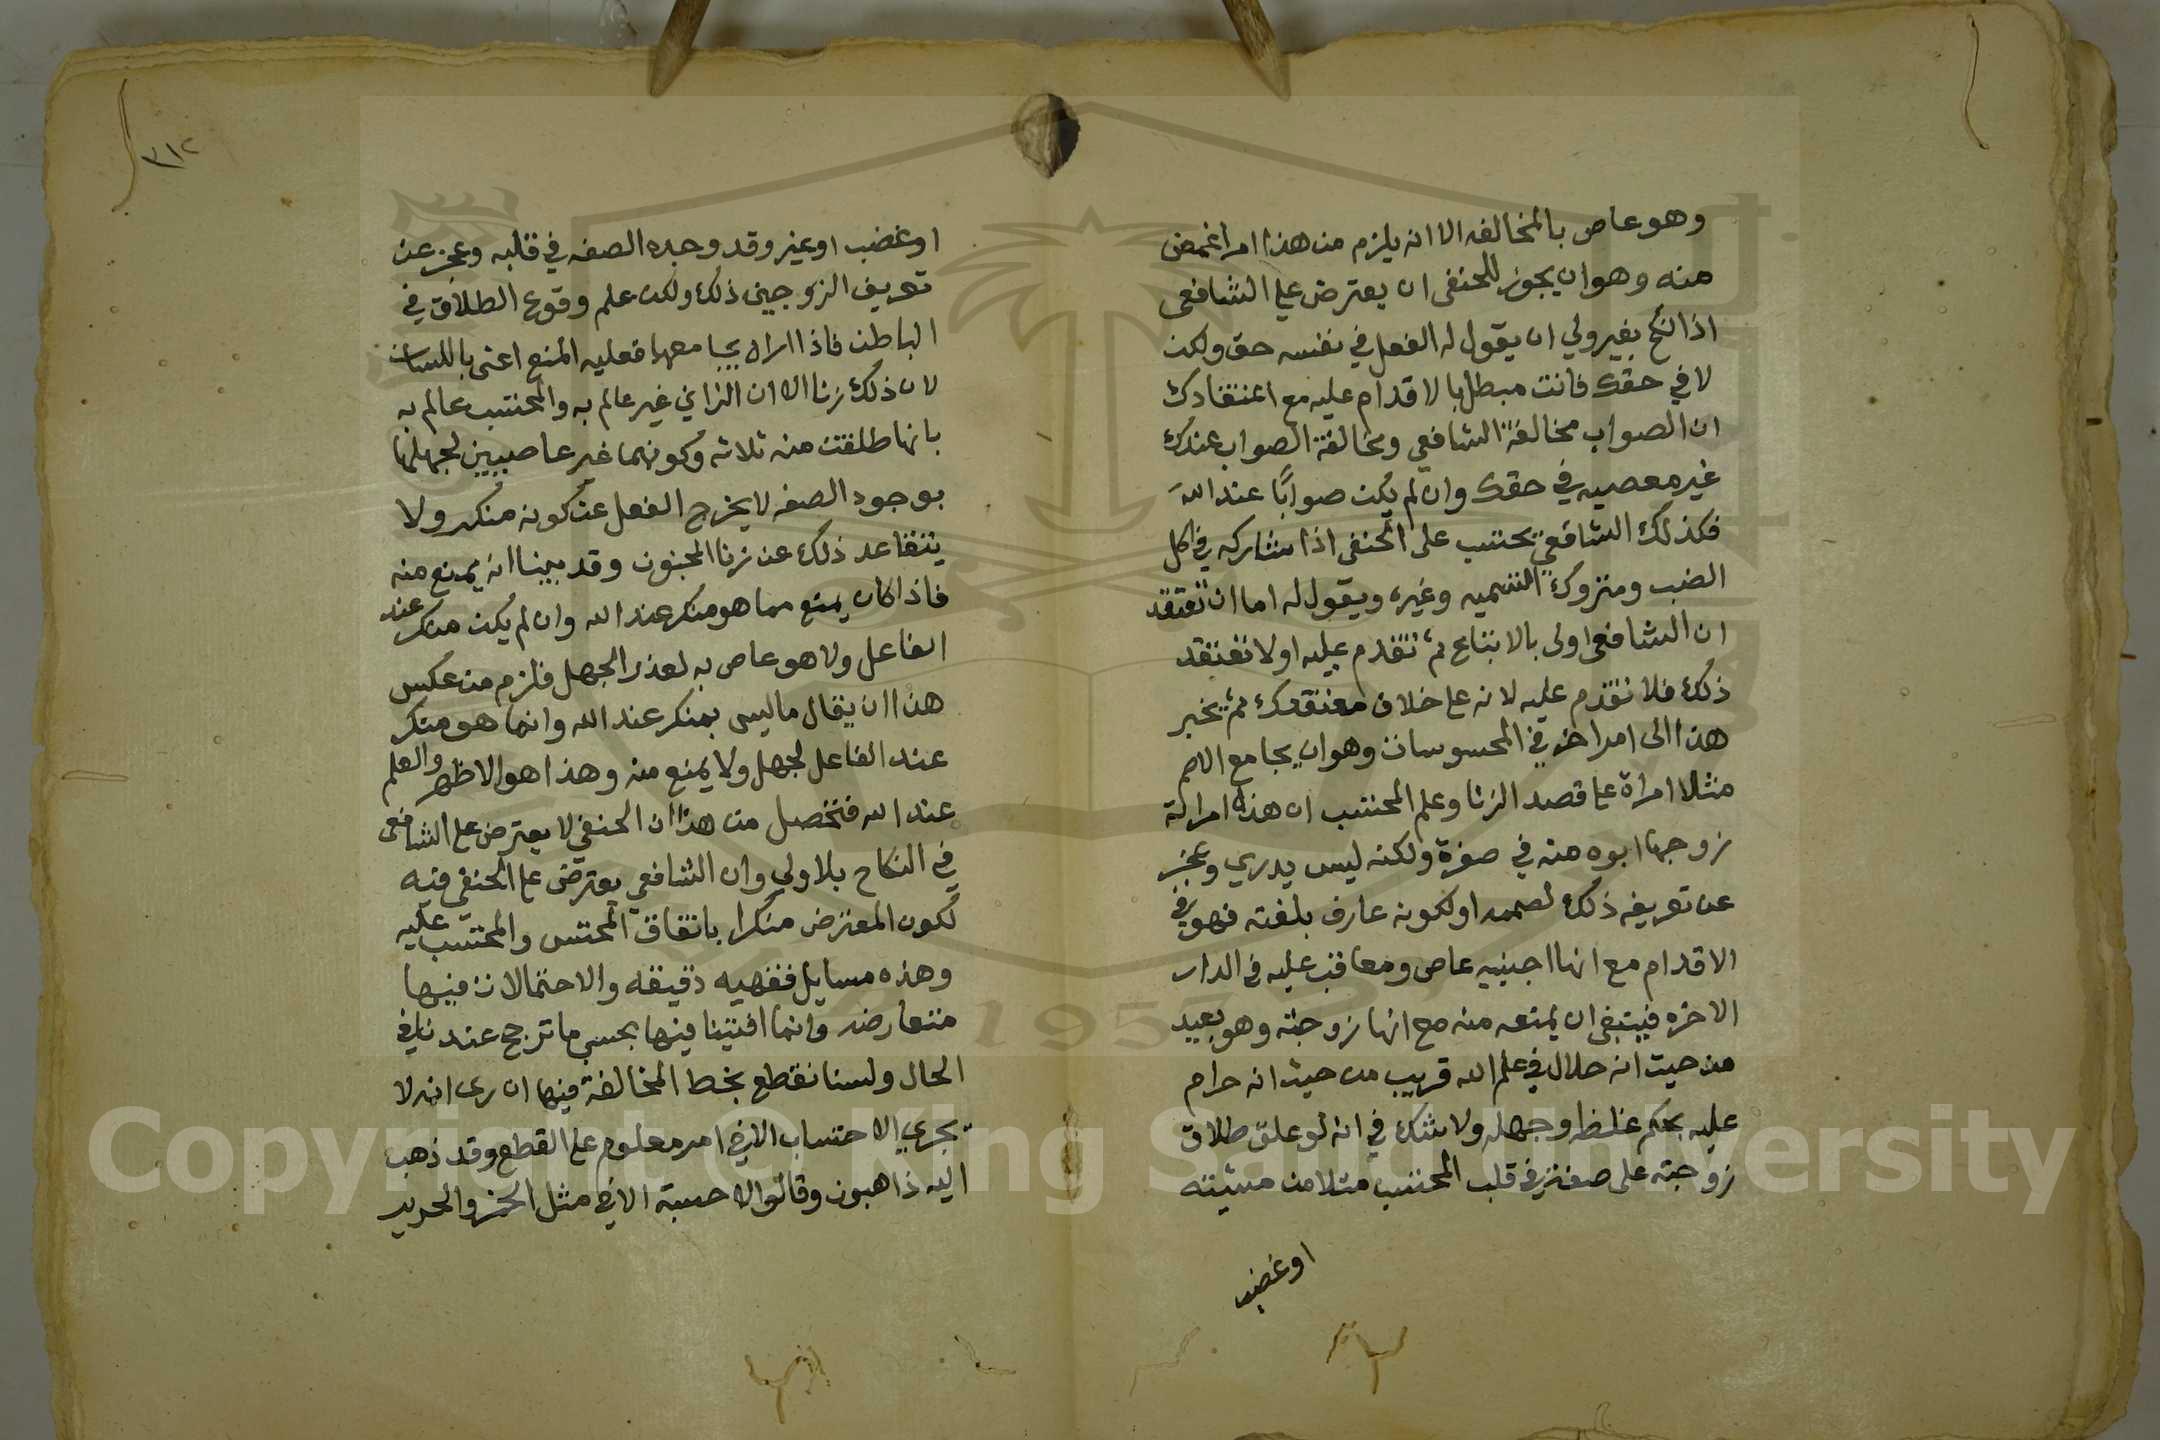 وهو عاص بالمخالفه الا انه يلزم من هذا امر اغمض
منه وهو ان يجوز للحنفى ان يعترض على الشافعى
اذا نكح بغير ولي ان يقول له الفعل في نفسه حق ولكن
لا في حقك فانت مبطل بالاقدام عليه مع اعتقادك
ان الصواب مخالفة الشافعي ومخالفة الصواب عندك
غير معصيه في حقك وان لم يكن صوابًا عند الله
فكذلك الشافعي يحتسب على الحنفى اذا شاركه في اكل
الضب ومتروك التسميه وغيره ويقول له اما ان تعتقد
ان الشافعى اولى بالاتباع ثم تقدم عليه او لا تعتقد
ذلك فلا تقدم عليه لانه على خلاف معتقدك ثم يخبر
هذا الى امر اخر في المحسوسات وهو ان يجامع الاصم
مثلا امراة على قصد الزنا وعلم المحتسب ان هذه امراته
زوجها ابوه منه في صغره ولكنه ليس يدري وعجز
عن تعريفه ذلك لصممه او لكونه عارف بلغته فهو في
الاقدام مع انها اجنبيه عاص ومعاقب عليه في الدار
الاخره فينبغى ان يمنعه منه مع انها زوجته وهو بعيد
من حيث انه حلال في علم الله قريب من حيث انه حرام
عليه بحكم غلطه وجهله ولا شك في انه لو علق طلاق
زوجته على صفة في قلب المحتسب مثلا من مشيته
او غضب
٣١٢
او غضب او غير وقد وجده الصفه في قلبه وعجز عن
تعريف الزوجين ذلك ولكن علم وقوع الطلاق في
الباطن فاذا اراه يجامعها فعليه المنع اعنى باللسان
لان ذلك زنا الا ان الزاني غير عالم به والمحتسب عالم به
بانها طلقت منه ثلاثه وكونهما غير عاصيين لجهلهما
بوجود الصفه لا يخرج الفعل عن كونه منكر ولا
يتقاعد ذلك عن زنا المجنون وقد بينا انه يمنع منه
فاذا كان يمنع مما هو منكر عند الله وان لم يكن منكر عند
الفاعل ولا هو عاص به لعذر الجهل فلزم من عكس
هذا ان يقال ما ليس بمنكر عند الله وانما هو منكر
عند الفاعل لجهل ولا يمنع منه وهذا هو الاظهر والعلم
عند الله فتحصل من هذا ان الحنفي لا يعترض على الشافعى
في النكاح بلا ولي وان الشافعي يعترض على الحنفى فيه
لكون المعترض منكرا باتفاق المحتسب والمحتسب عليه
وهذه مسايل فقهيه دقيقه والاحتمالات فيها
متعارضه وانما افتينا فيها بحسب ما ترجح عندنا في
الحال ولسنا نقطع بخطا المخالفة فيها ان رى انه لا
يجري الاحتساب الا في امر معلوم على القطع وقد ذهب
اليه ذاهبون وقالوا لا حسبة الا في مثل الخمر والحرير
Copyright © King Saud University
1957